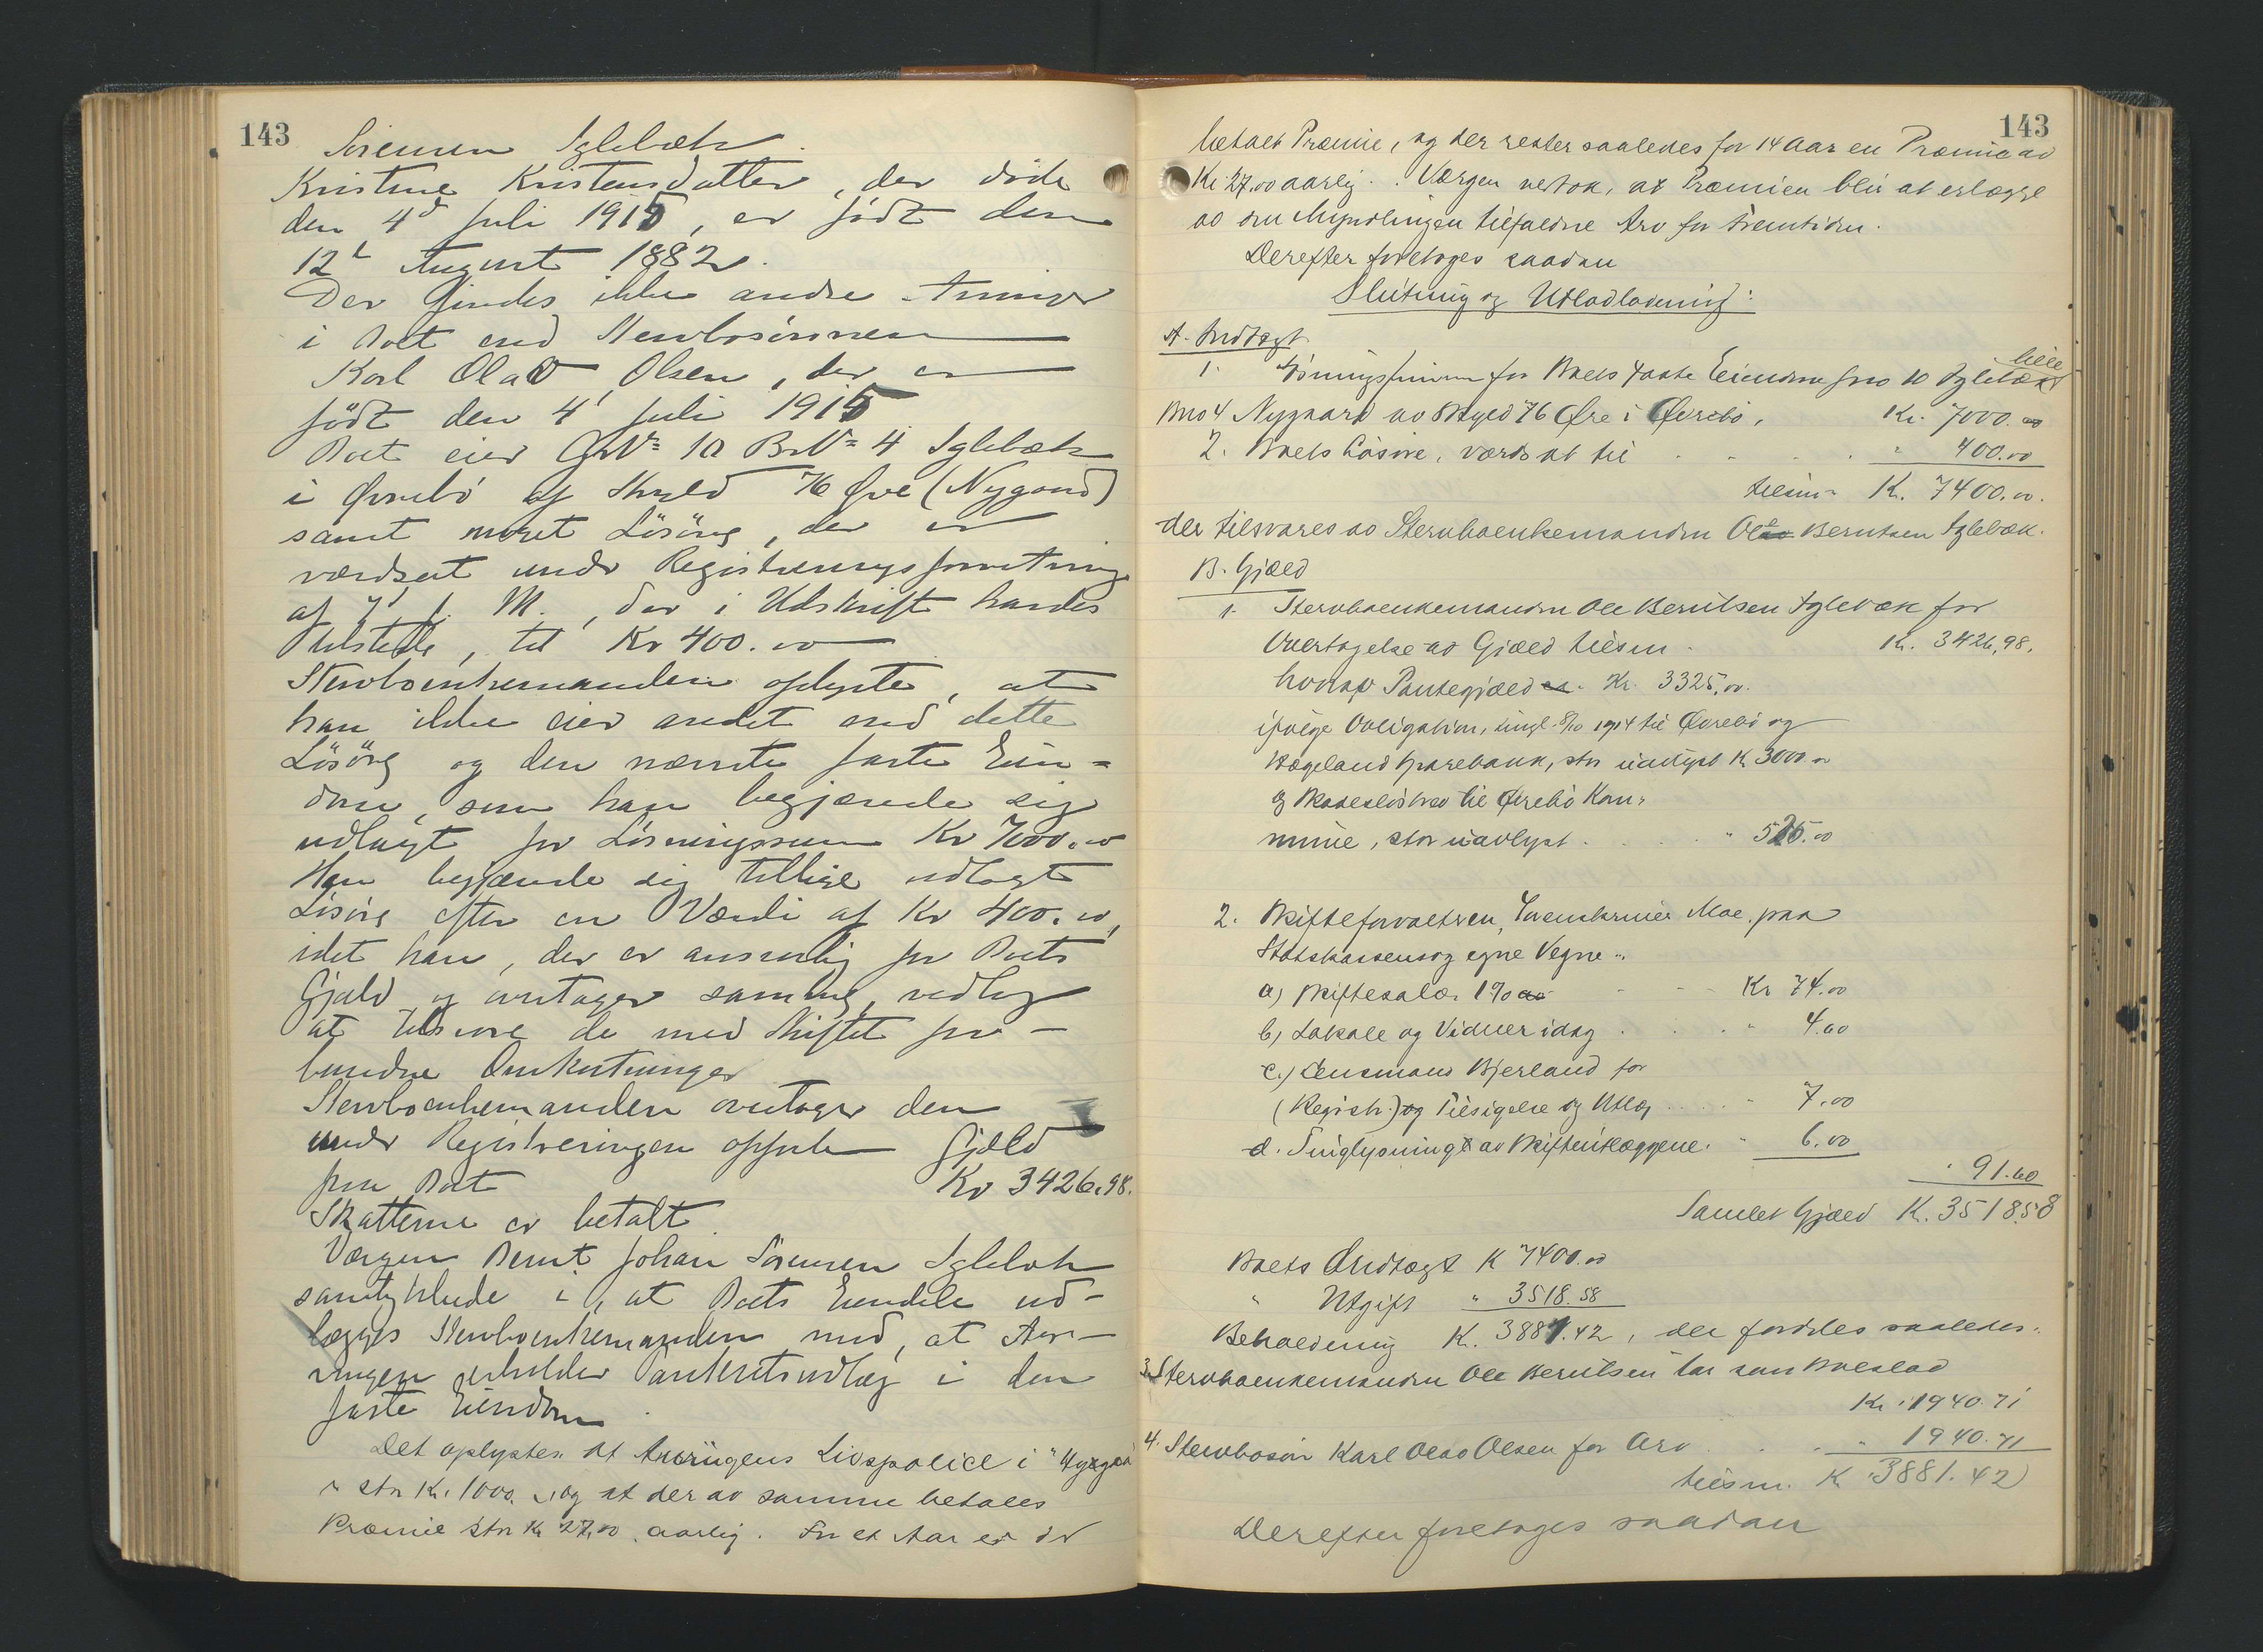 143
Sörensen Iglebæk.
Kristine Kristensdatter, der döde
den 4de Juli 1915, er födt den
12te August 1882.
Der findes ikke andre Arvinger
i Boet end Stervbosönnen
Karl Olav Olsen, der er
födt den 4 Juli 1915
Boet eier GNr 10 BrNr 4 Iglebæk
i Øvrebö af Skyld 76 Øre (Nygaard)
samt noget Lösöre, der er
værdsat under Registreringsforretning
af 7 f. M., der i Udskrift havdes
tilstede, til Kr 400.00
Stervboenkemanden oplyste, at
han ikke eier andet end dette
Lösöre og den nævnte faste Eien=
dom, som han begjærede sig
udlagt for Lösningssum Kr 7000.00
Han begjærede sig tillige udlagt
Lösöre efter en Værdi af Kr 400.00,
idet han, der er ansvarlig for Boets
Gjæld og overtager samme, vedtog
at tilsvare de med Skiftet for-
bundne Omkostninger
Stervboenkemanden overtager den
under Registreringen opførte Gjæld
for Boet Kr 3426.98.
Skatterne er betalt.
Værgen Bernt Johan Sörensen Iglebæk
samtykkede i, at Boets Eiendele ud-
lægges Stervboenkemanden mod, at Arv-
ingen erholder Panteretsudlæg i den
faste Eiendom.
Det oplystes at Arvingens Livspolice i "Hygea"
er stor Kr. 1000. , og at der av samme betales
Præmie stor Kr 27,00 aarlig. For et Aar er der
143
betalt Præmie, og der rester saaledes for 14 Aar en Præmie av
Kr. 27.00 aarlig. Værgen vedtok, at Præmien blir at erlægge
av den Myndlingen tilfaldne Arv for Fremtiden.
Derefter foretoges saadan
Slutning og Utlodning:
A. Indtægt.
lille
1. Løsningssummen for Boets faste Eiendom Gno 10 Iglebæk
Bno 4 Nygaard av Skyld 76 Øre i Øvrebø, Kr. 7000.00
2. Boets Løsøre, værdsat til " 400.00
tilsm. Kr. 7400.00.
der tilsvares av Stervboenkemanden Ole Berntsen Iglebæk.
B. Gjæld
1. Stervboenkemanden Ole Berntsen Iglebæk for
Overtagelse av Gjæld tilsm. Kr. 3426,98.
hvorav Pantegjæld Kr 3325,00.
ifølge Obligation, tingl. 8/10 1914 til Øvrebø og
Hægeland Sparebank, stor uavlyst Kr 3000.00
og Skadesløsbrev til Øvrebø Kom=
mune, stor uavlyst " 525.00
2. Skifteforvalteren, Sorenskriver Moe, paa
Statskassens og egne Vegne:
a) Skiftesalær 1% Kr 74.00
b) Lokale og Vidner idag " 4.60
c.) Lensmand Bjerland for
(Registr.) og Tilsigelse og Utlæg " 7.00
d. Tinglysning av Skifteutlæggene. " 6.00
" 91.60
Samlet Gjæld Kr. 3518.58
Boets Indtægt Kr 7400.00
" Utgift " 3518.58
Beholdning Kr. 3881.42, der fordeles saaledes:
3. Stervboenkemanden Ole Berntsen tar som Boeslod
Kr. 1940.71
4. Stervbosøn Karl Olav Olsen for Arv " 1940.71
tilsm. Kr. 3881.42
Derefter foretoges saadan